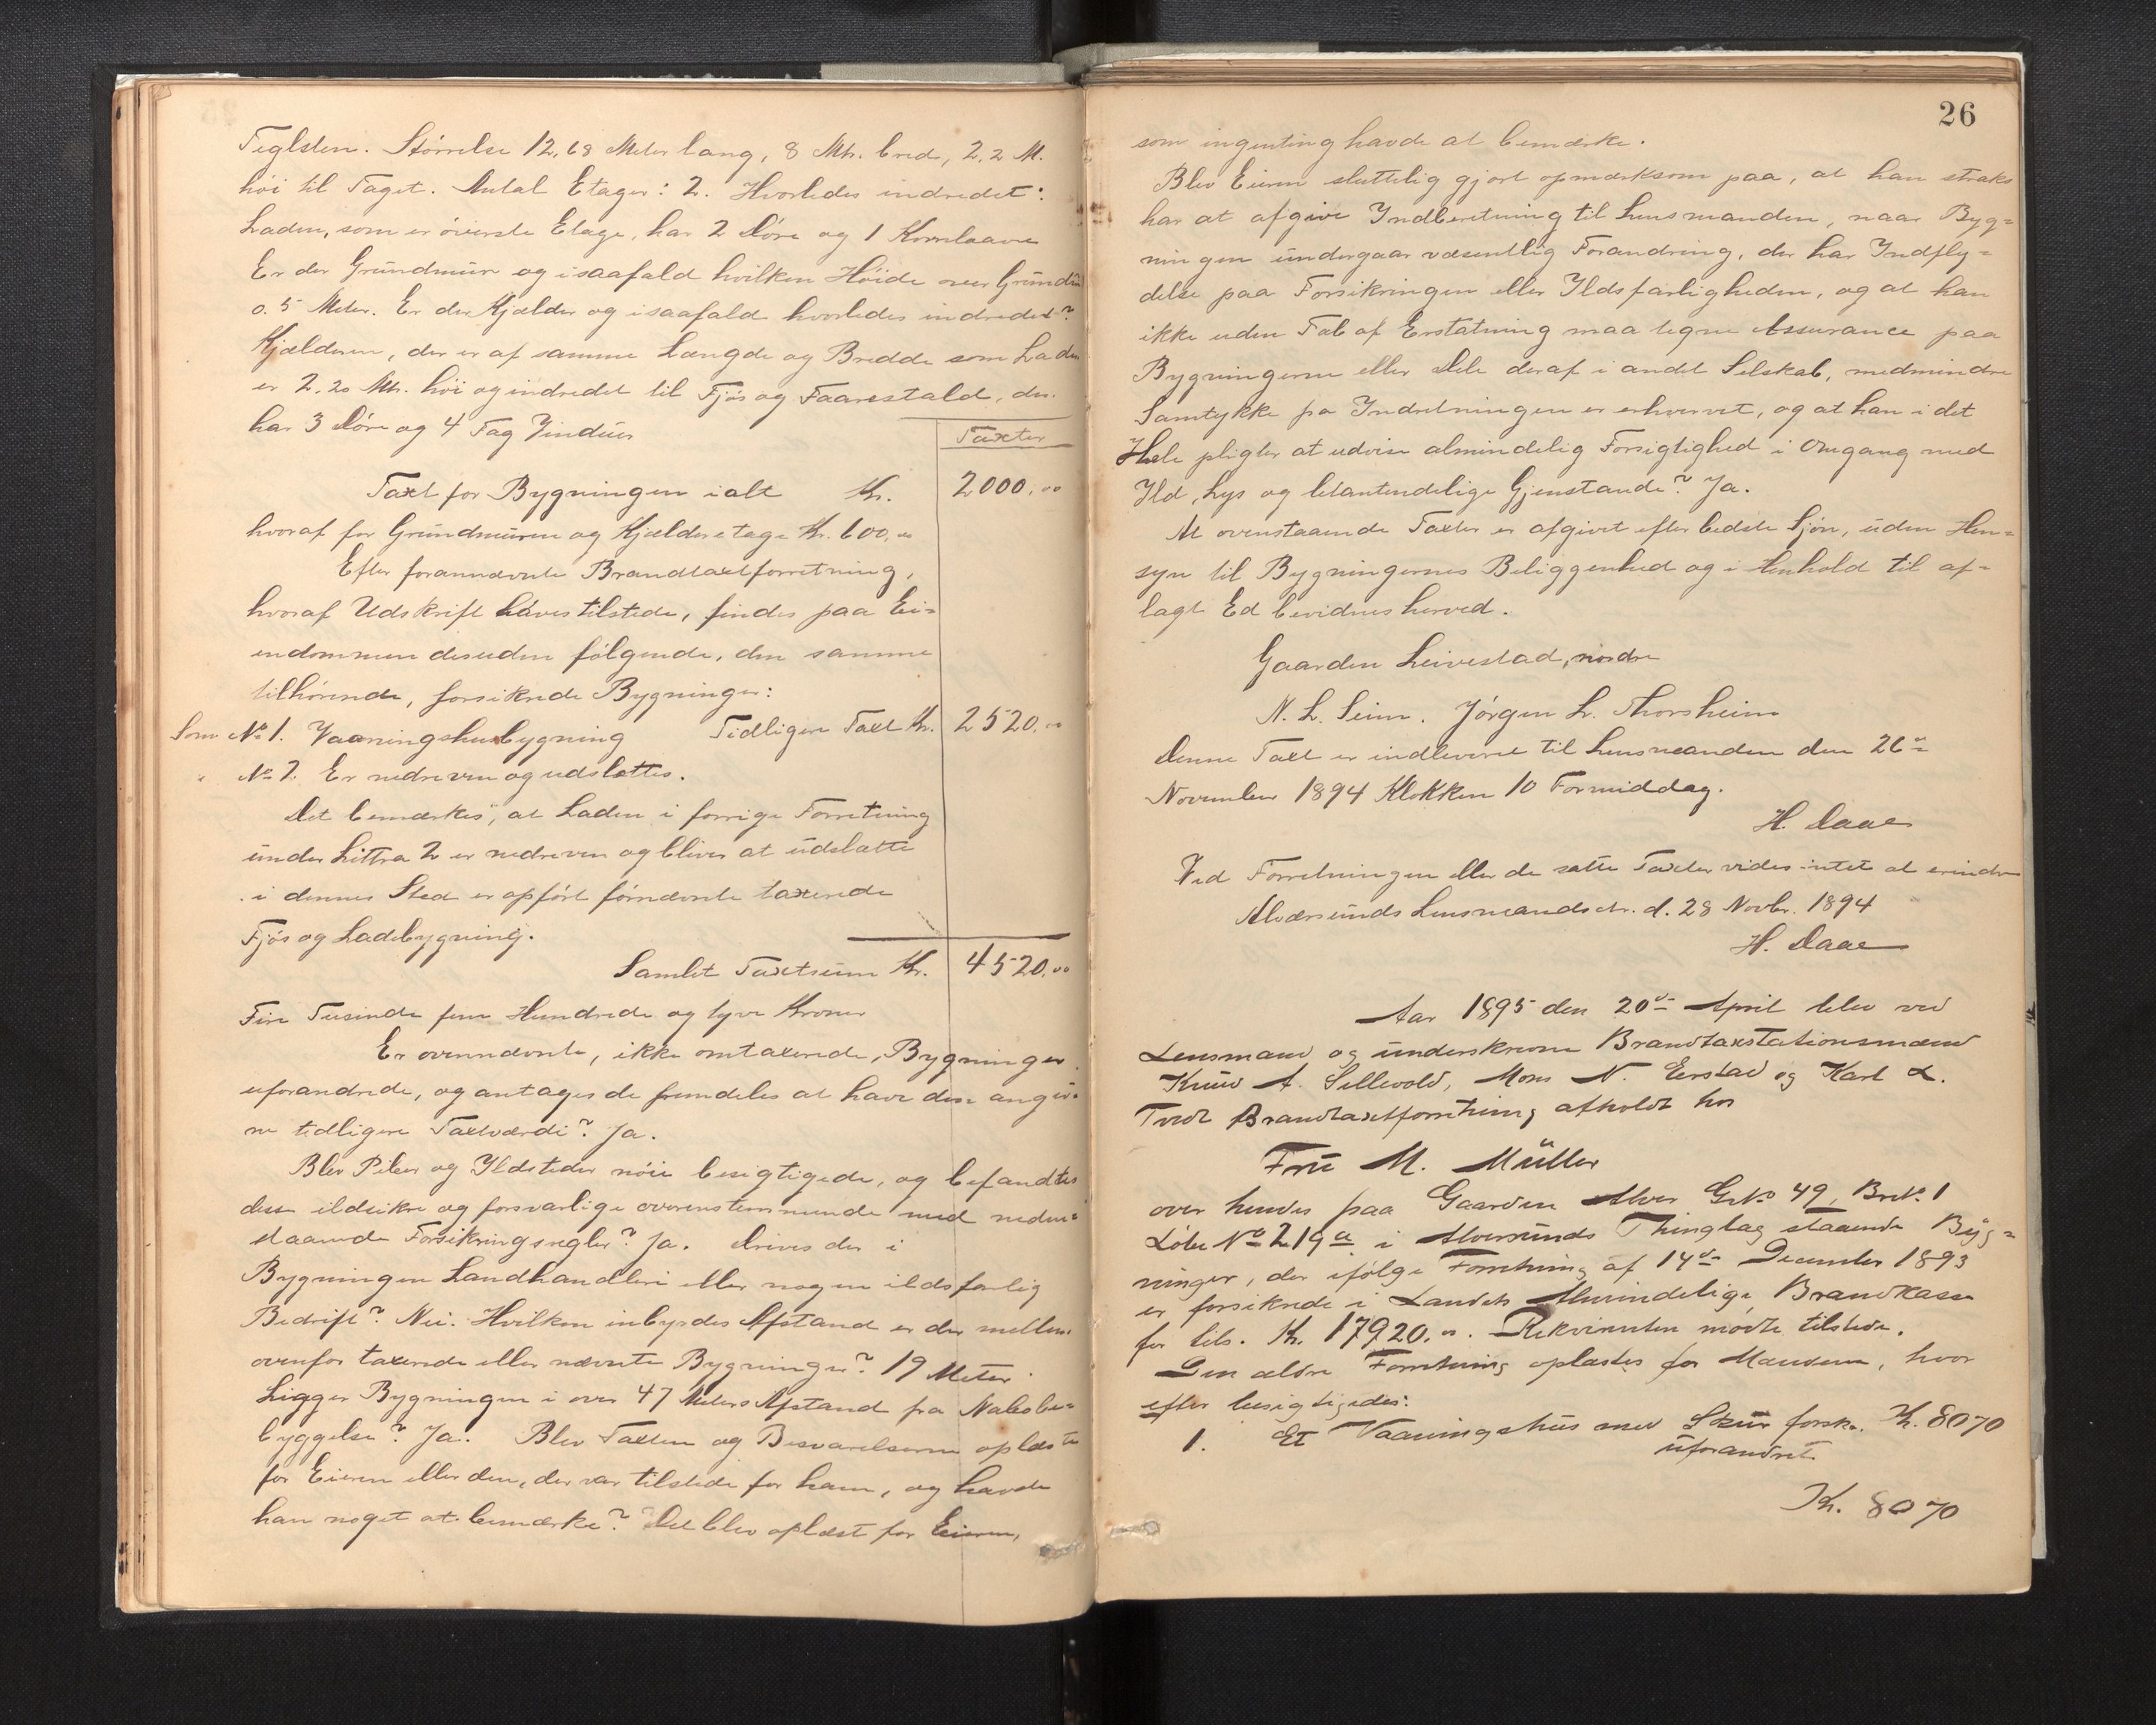 Teglsten. Størrelse 12,68 Meter lang, 8 Mtr. bred, 2,2 M.
høi til Taget. Antal Etager: 2. Hvorledes indredet:
Laden, som er øverste Etage, har 2 Døre og 1 Kornlaave
Er der Grundmur og isaafald hvilken Høide over Grunden
0.5 Meter. Er der Kjælder og isaafald hvorledes indredet?
Kjælderen, der er af samme Længde og Bredde som Laden
er 2,20 Mtr. høi og indredet til Fjøs og Faarestald, der
har 3 Døre og 4 Fag Vinduer
Taxter
Taxt for Bygningen ialt Kr. 2000,00
hvoraf for Grundmuren og Kjælderetage Kr. 600,00
Efter forannævnte Brandtaxtforretning,
hvoraf Udskrift haves tilstede, findes paa Ei=
endommen desuden følgende, den samme
tilhørende, forsikrede Bygninger:
Som No 1. Vaaningshusbygning Tidligere Taxt Kr. 2520,00
" No 2. Er nedreven og udslettes.
Det bemærkes, at Laden i forrige Forretning
under Littra 2 er nedreven og bliver at udslette
i dennes Sted er opført førnævnte taxerede
Fjøs og Ladebygning.
Samlet Taxtsum Kr. 4520,00
Fire Tusinde fem Hundrede og tyve Kroner
Er ovennævnte, ikke omtaxerede, Bygninger
uforandrede, og antages de fremdeles at have den angiv=
ne tidligere Taxtværdi? Ja.
Blev Piber og Ildsteder nøie besigtigede, og befandtes
disse ildsikre og forsvarlige overensstemmende med neden=
staaende Forsikringsregler? Ja. Drives der i
Bygningen Landhandleri eller nogen ildsfarlig
Bedrift? Nei. Hvilken inbyrdes Afstand er der mellem
ovenfor taxerede eller nævnte Bygninger? 19 Meter.
Ligger Bygningen i over 47 Meters Afstand fra Nabobe=
byggelse? Ja. Blev Taxten og Besvarelserne oplæste
for Eieren eller den, der var tilstede for ham, og havde
han noget at bemærke? Det blev oplæst for Eieren,
26
som ingenting havde at bemærke.
Blev Eieren sluttelig gjort opmærksom paa, at han straks
har at afgive Indberetning til Lensmanden, naar Byg=
ningen undergaar væsentlig Forandring, der har Indfly=
delse paa Forsikringen eller Ildsfarligheden, og at han
ikke uden Tab af Erstatning maa tegne Assurance paa
Bygningerne eller Dele deraf i andet Selskab, medmindre
Samtykke fra Indretningen er erhvervet, og at han i det
Hele pligter at udvise almindelig Forsigtighed i Omgang med
Ild, Lys og letantændelige Gjenstande? Ja.
At ovenstaaende Taxter er afgivet efter bedste Sjøn, uden Hen=
syn til Bygningernes Beliggenhed og i Henhold til af=
lagt Ed bevidnes herved.
Gaarden Leivestad, nordre
N. L. Seim. Jørgen L. Thorsheim
Denne Taxt er indleveret til Lensmanden den 26de
November 1894 Klokken 10 Formiddag.
H. Daae
Ved Forretningen eller de satte Taxter vides intet at erindre
Alversunds Lensmandsdr. d. 28 Novbr. 1894
H. Daae
Aar 1895 den 20de April blev ved
Lensmand og underskrevne Brandtaxtationsmænd
Knud A. Sellevold, Mons N. Eerstad og Karl L.
Tvedt Brandtaxtforretning afholdt hos
Fru M. Müller
over hendes paa Gaarden Alver Gr.No 49, Br.No. 1
Løbe No 219a i Alversunds Thinglag staaende Byg=
ninger, der ifølge Forretning af 14de December 1893
er forsikrede i Landets Almindelige Brandkasse
for tils. Kr. 17920,00. Rekvirenten mødte tilstede.
Den ældre Forretning oplæstes for Mændene, hvor
efter besigtigedes:
1. Et Vaaningshus med Skur forsk. Kr. 8070
uforandret
Kr. 8070